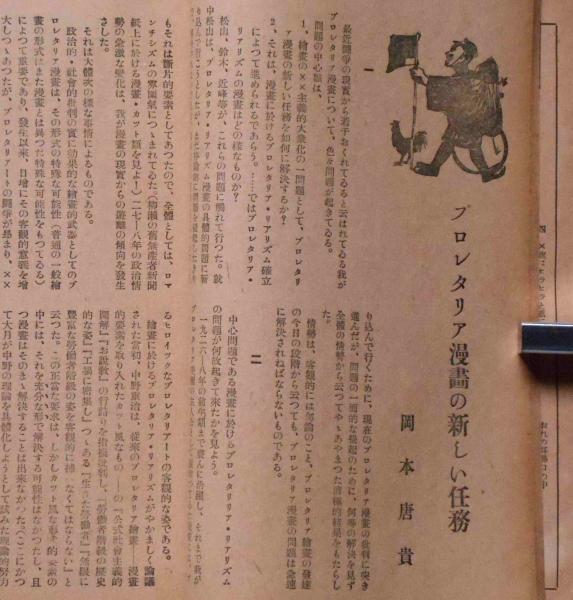 プロレタリア漫畫の新しい任務
岡本唐貴
一
最近鬪爭の現實から若干おくれてゐると云はれてゐる我が
プロレタリア漫畫について、色々問題が起きてゐる。
問題の中心題は、
1、繪畫の××主義的大衆化の一問題として、プロレタリ
ア漫畫の新しい任務を如何に解決するか?
2、それは、漫畫に於けるプロレタリア・リアリズム確立
によつて進められるであらう。……ではプロレタリア・
リアリズムの漫畫はどの樣なものか?
松山、鈴木、近峰等が、これらの問題に觸れて行つた。就
中松山は、プロレタリア・リアリズム漫畫の具體的問題に
り込んで行くために、現在のプロレタリア漫畫の批判に突き
進んだが、問題の一面的な提起のために、何等の解決を見ず
全體の情勢から云つてやゝあやまつた消極的結果をもたらし
た。
情勢は、客觀的には勿論のこと、プロレタリア繪畫の發達
の今日の段階から云つても、プロレタリア漫畫の問題は急速
に解決されねばならないものである。
二
中心問題である漫畫に於けるプロレタリア・リアリズム
の問題が何故起きて來たかを見よう。
もそれは斷片的要素としてあつたので、全體としては、ロマ
ンチシズムの雰圍氣につゝまれてゐた。(柳瀨の舊無產者新聞
紙上に於ける漫畫・カット類を見よ!)二七・八年の政治情
勢の急激な變化は、我が漫畫の現實からの游離の傾向を發生
さした。
それは大體次の樣な事情によるものである。
政治的・社會的批判の實に効果的な繪畫的武器としてのプ
ロレタリア漫畫は、その形式の特殊な可能性(普通の一般繪
畫の形式はまた漫畫とは異つた特殊な可能性をもつてゐる)
によつて重要であり、發生以來、日增にその客觀的意義を增
大しつゝあつたが、プロレタリアートの鬪爭が昂まり、××
るヒロイツクなプロレタリアートの客觀的な姿である。
繪畫に於けるプロレタリア・リアリズムがやかましく論議
された當初、中野重治は、從來のプロレタリア繪畫——漫畫
的要素を取り入れたカット風なもの——の『公式社會主義的
圖解』『お說敎』の行詰りを指摘批判し、『勞働者階級の歷史
的な姿』『工場に密集し』つゝある『生きた勞働者』『無限に
豐富な勞働者階級の姿を客觀的に描かなくてはならない』と
云つた。この正當な要求は、しかしカット風な形式的要素の
中には、それを充分な形で解決する可能性はなかつたし、且
つ漫畫はそのまゝ解決することは出來なかつた。(ここにかつ
て大月が中野の理論を具體化しようとして試みた理論的努力